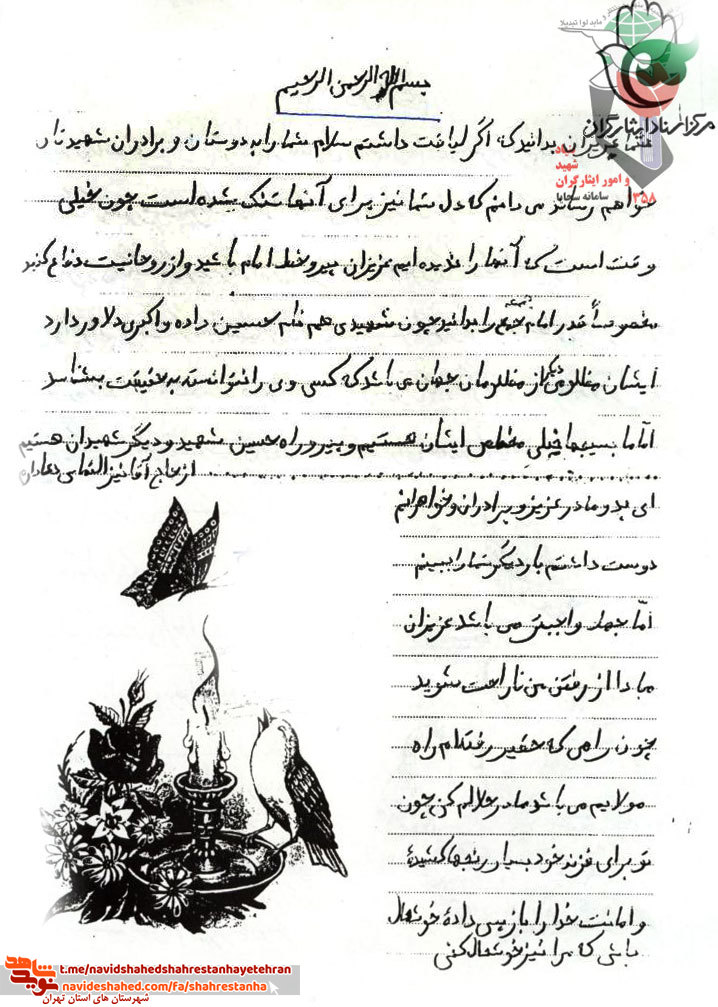 بسم الله الرحمن الرحیم
شما عزیزان بدانید که اگر لیاقت داشتم سلام شما را به دوستان و برادران شهیدتان
خواهم رساند می دانم که دل شما نیز برای آنها تنگ شده است چون خیلی
وقت است که آنها را ندیده ایم عزیزان پیرو خط امام باشید و از روحانیت دفاع کنید
مخصوصاً قدر امام جمعه را بدانید چون شهیدی هم نام حسین داده و اکبری دلاور دارد
ایشان مظلومی دیگر از مظلومان جهان می باشد که کسی وی را نتوانسته به حقیقت بشناسد
امّا ما بسیجیها خیلی مخلص ایشان هستیم و پیرو راه حسین شهید و دیگر شهیدان هستیم
از حاج آقا نیز التماس دعا دارن
ای پدر و مادر عزیز و برادران و خواهرانم
دوست داشتم بار دیگر شما را ببینم
امّا جهاد واجبتر می باشد عزیزان
مبادا از رفتن من ناراحت شوید
چون راهی که حقیر رفته ام راه
مولایم می باشد مادر حلالم کن چون
تو برای فرزند خود بسیار رنجها کشیدهٔ
و امانت خدا را بازپس دادهٔ خوشحال
باشی که مرا نیز خوشحال کنی
مرکز اسناد ایثارگران
بنیاد
شهید
و امور ایثارگران
سامانه سجایا
۳۵۸
نوید شاهد
t.me/navidshahedshahrestanhayetehran
navideshahed.com/fa/shahrestanha
شهرستان های استان تهران